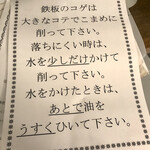 鉄板のコゲは
大きなコテでこまめに
削って下さい。
落ちにくい時は、
水を少しだけかけて
削って下さい。
水をかけたときは、
あとで油を
うすくひいて下さい。